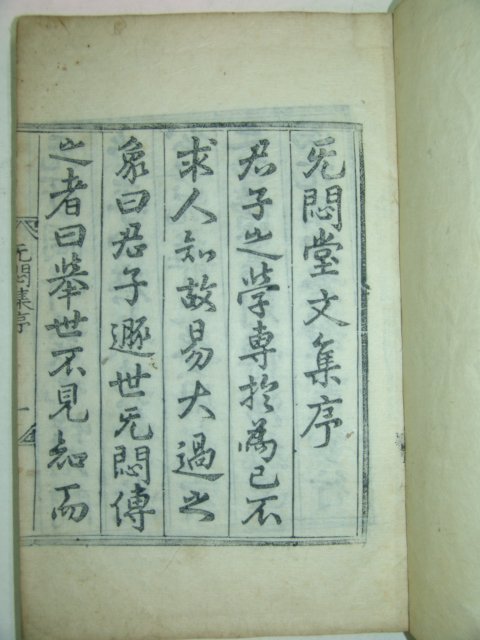 无悶堂文集序
君子之學專於爲己不
求人知故易大過之
象曰君子遯世无悶傳
之者曰舉世不見知而
无悶集序
一